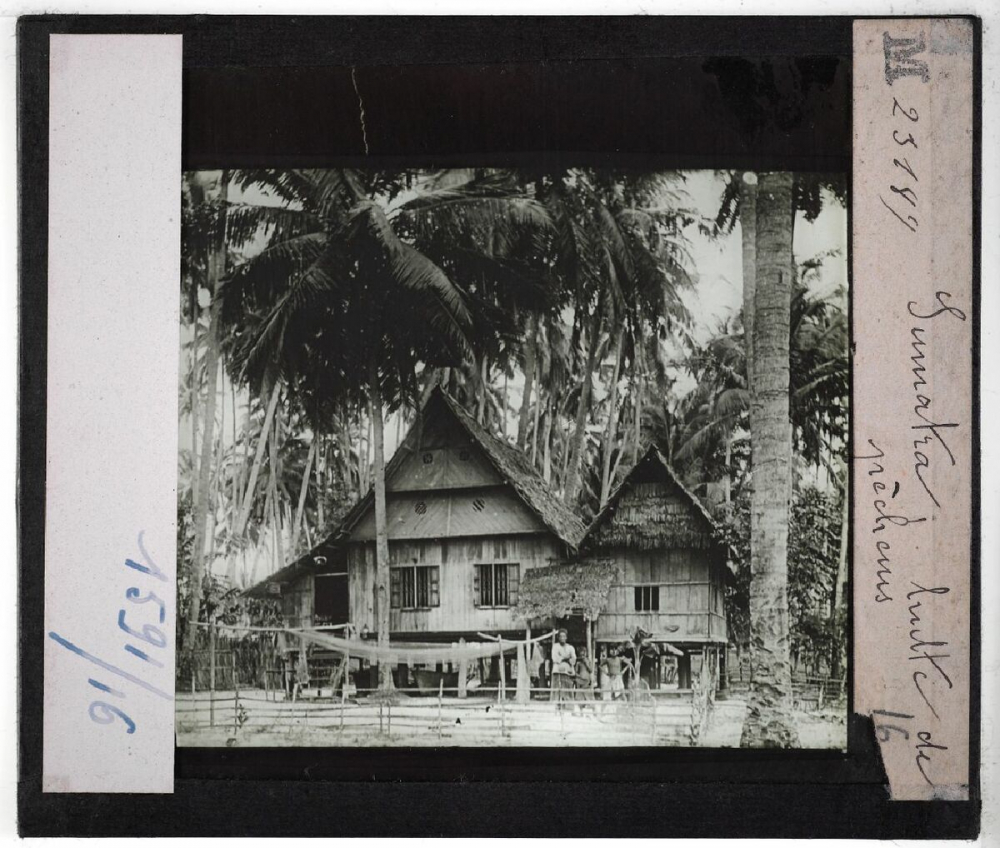 M 23189 Sumatra. hutte de
pêcheurs
16
1591/16